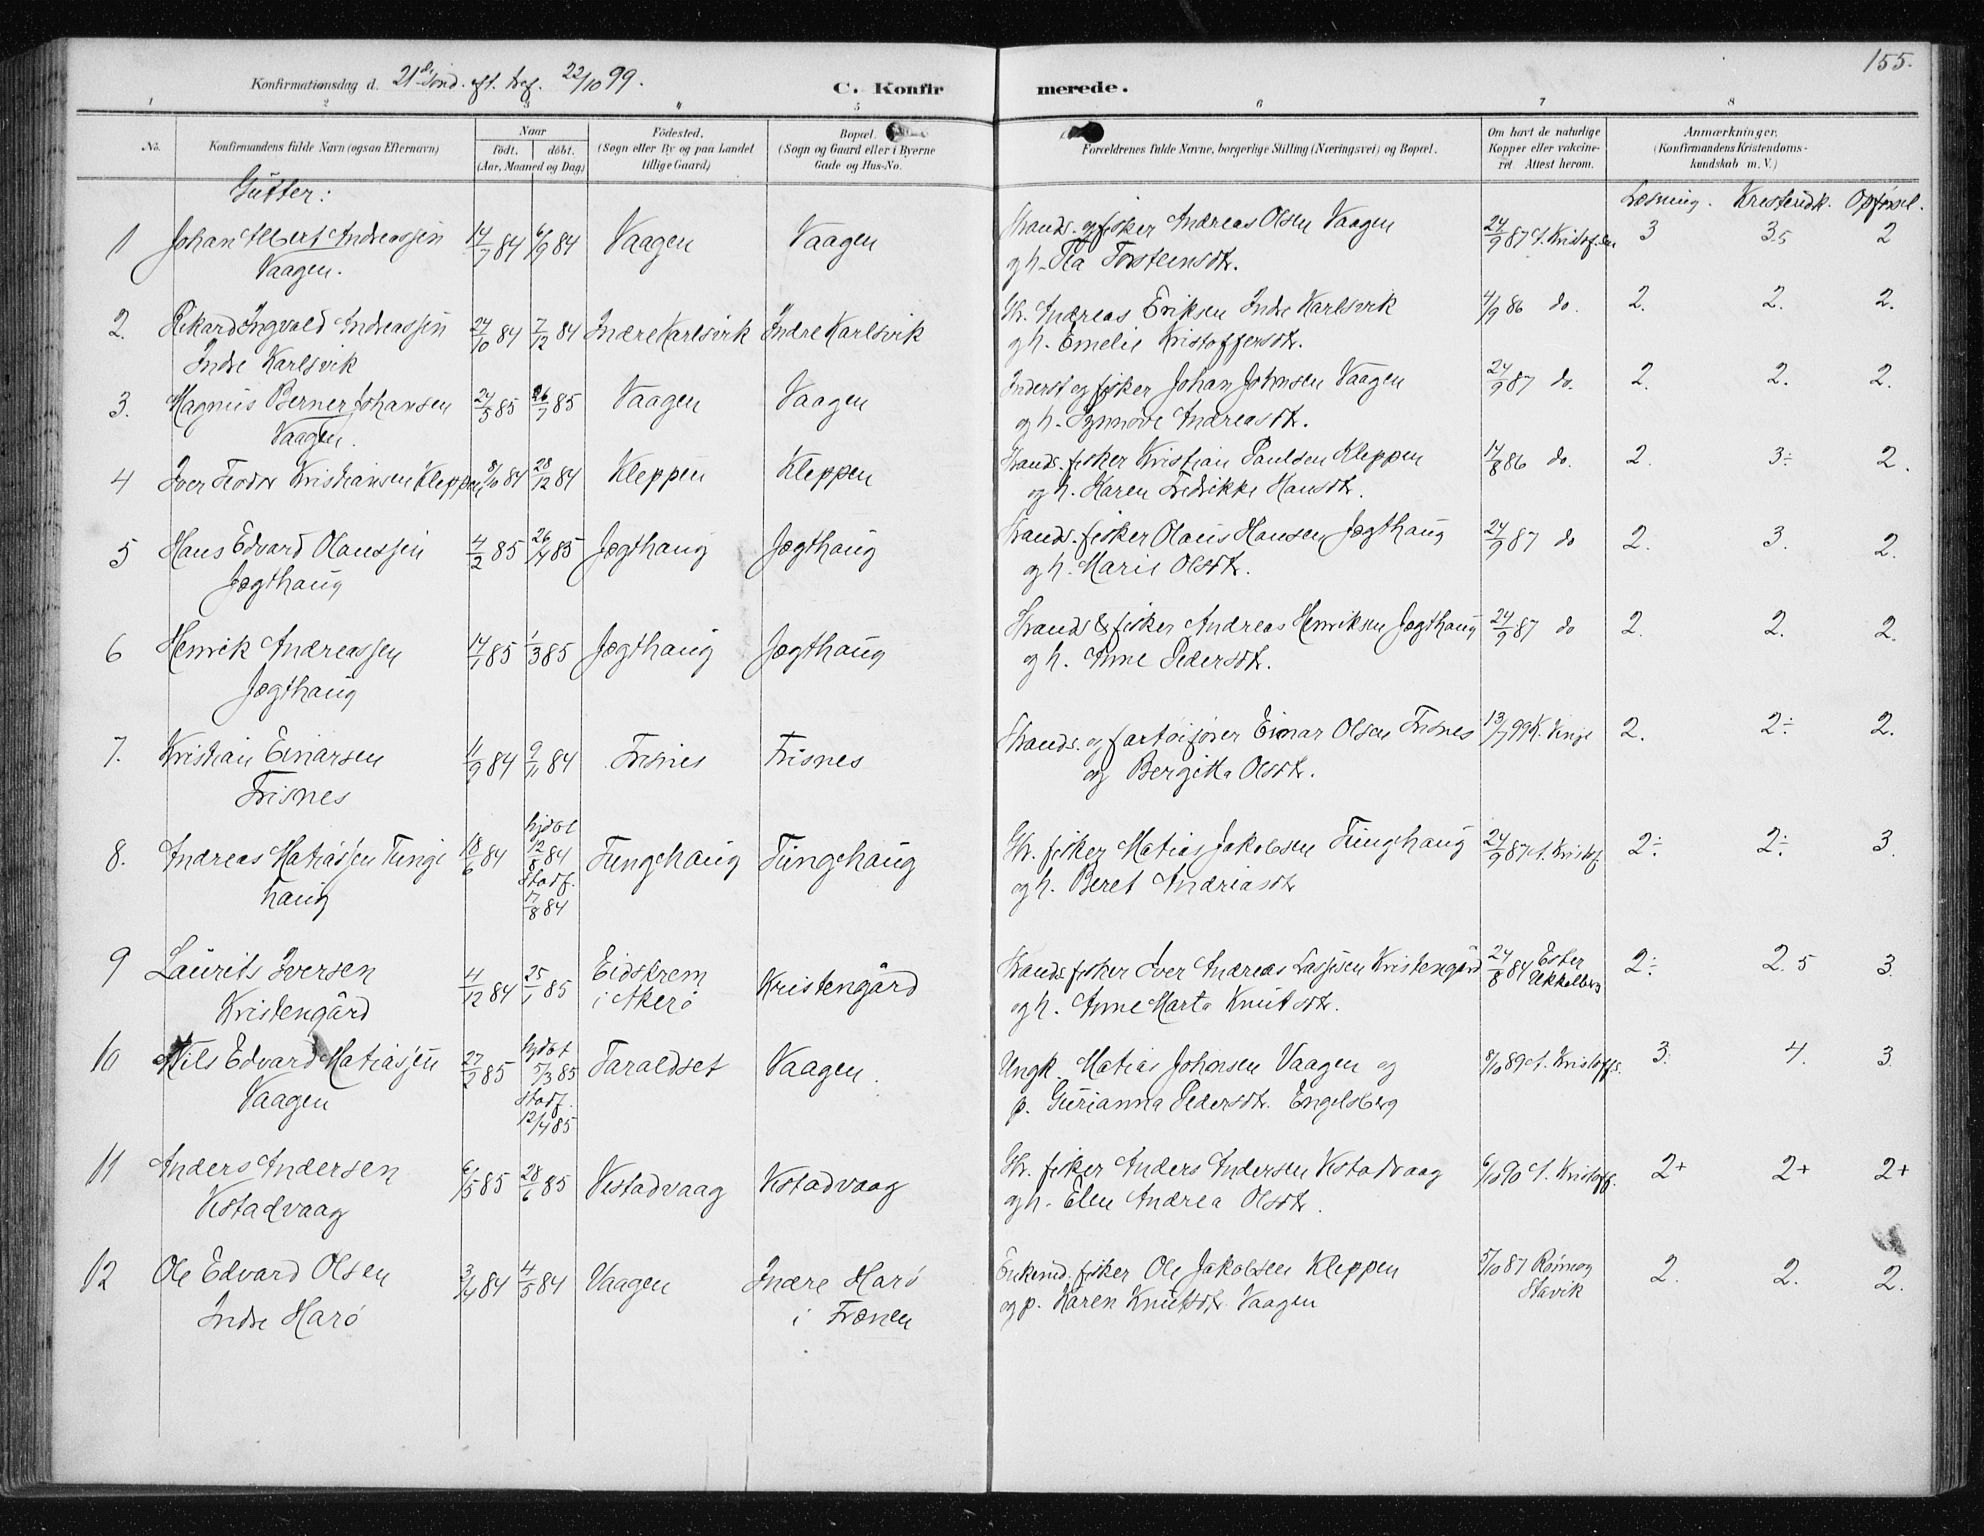 155.
Konfirmationsdag d. 21de Sönd. eft. tref. 22/10 99.
C. Konfirmerede.
1 2 3 4 5 6 7 8
No.
Konfirmandens fulde Navn (ogsaa Efternavn)
Naar
födt. döbt.
(Aar, Maaned og Dag)
Födested.
(Sogn eller By og paa Landet
tillige Gaard)
Bopæl.
(Sogn og Gaard eller i Byerne
Gade og Hus-No.
Forældrenes fulde Navne, borgerlige Stilling (Næringsvei) og Bopæl.
Om havt de naturlige
Kopper eller vakcine-
ret. Attest herom.
Anmærkninger.
(Konfirmandens Kristendoms-
kundskab m. V.)
Gutter:
Læsning. Kristendk. Opförsel.
1 Johan Albert Andreassen 14/7 84 6/9 84 Vaagen Vaagen Strands. og fisker Andreas Olsen Vaagen 24/9 87 A. Kristofsen 3 3,5 2
Vaagen. og h. Ha Torsteinsdtr.
2. Rikard Ingvald Andreassen 24/10 84 7/12 84 Indre Karlsvik Indre Karlsvik Str. Andreas Eriksen Indre Karlsvik 4/9 86 do. 2. 2. 2.
Indre Karlsvik og h. Emelie Kristoffersdtr.
3. Magnus Berner Johansen 24/5 85 26/7 85 Vaagen Vaagen Inderst og fisker Johan Johnsen Vaagen 24/9 87 do. 2. 2. 2.
Vaagen. og h. Synnove Andreasdtr.
4 Iver Teodor Kristiansen Kleppen 8/10 84 28/12 84 Kleppen Kleppen Strands. fisker Kristian Paulsen Kleppen 14/8 86 do. 2. 3÷ 2.
og h. Karen Fredrikke Hansdtr.
5 Hans Edvard Olaussen 4/2 85 26/4 85 Jægthaug Jægthaug Strands. fisker Olaus Hansen Jægthaug 24/9 87 do 2. 3. 2.
Jægthaug og h. Marie Olsdtr.
6 Henrik Andreassen 14/1 85 1/3 85 Jægthaug Jægthaug Strands & fisker Andreas Henriksen Jægthaug 24/9 87 do 2. 2. 2.
Jægthaug og h. Anne Pedersdtr.
7. Kristian Einarsen 11/9 84 9/11 84 Frisnes Frisnes Strands. og fartöiförer Einar Olsen Frisnes 13/7 99 K. Vinje 2. 2÷ 2.
Frisnes og Bergitta Olsdtr.
8. Andreas Matiassen Tunge 18/6 84 hjdöbt 12/8 84 Tungehaug Tungehaug Str. fisker Matias Jakobsen Tunghaug 24/9 87 A. Kristof. 2÷ 2÷ 3.
haug Stadf. 17/8 84 og h. Beret Andreasdtr
9 Laurits Iversen 4/12 84 25/1 85 Eidskrem Kristengård Strands. fisker Iver Andreas Lassesen Kristengård 24/8 84 Ester 2÷ 2.5 3.
Kristengård i Akerö og h. Anne Marta Knutsdtr.
10 Nils Edvard Matiassen 27/2 85 hjdöbt 5/3 85 Taraldset Vaagen. Ungk. Matias Johnsen Vaagen og 8/10 89 A. Kristoffs. 3. 4. 3.
Vaagen Stadf. 12/4 85 p. Gurianna Pedersdtr. Engelsberg
11 Anders Andersen 6/5 85 28/6 85 Vestadvaag Vestadvaag Str. fisker Anders Andersen Vestadvaag 6/10 90 A. Kristoff. 2+ 2+ 2+
Vestadvaag og h. Elen Andrea Olsdtr.
12 Ole Edvard Olsen 3/4 84 4/5 84 Vaagen Indre Harö Enkemd. fisker Ole Jakobsen Kleppen 5/10 87 2. 2. 2.
Indre Harö i Frænen og p. Karen Knutsdtr. Vaagen Stavik